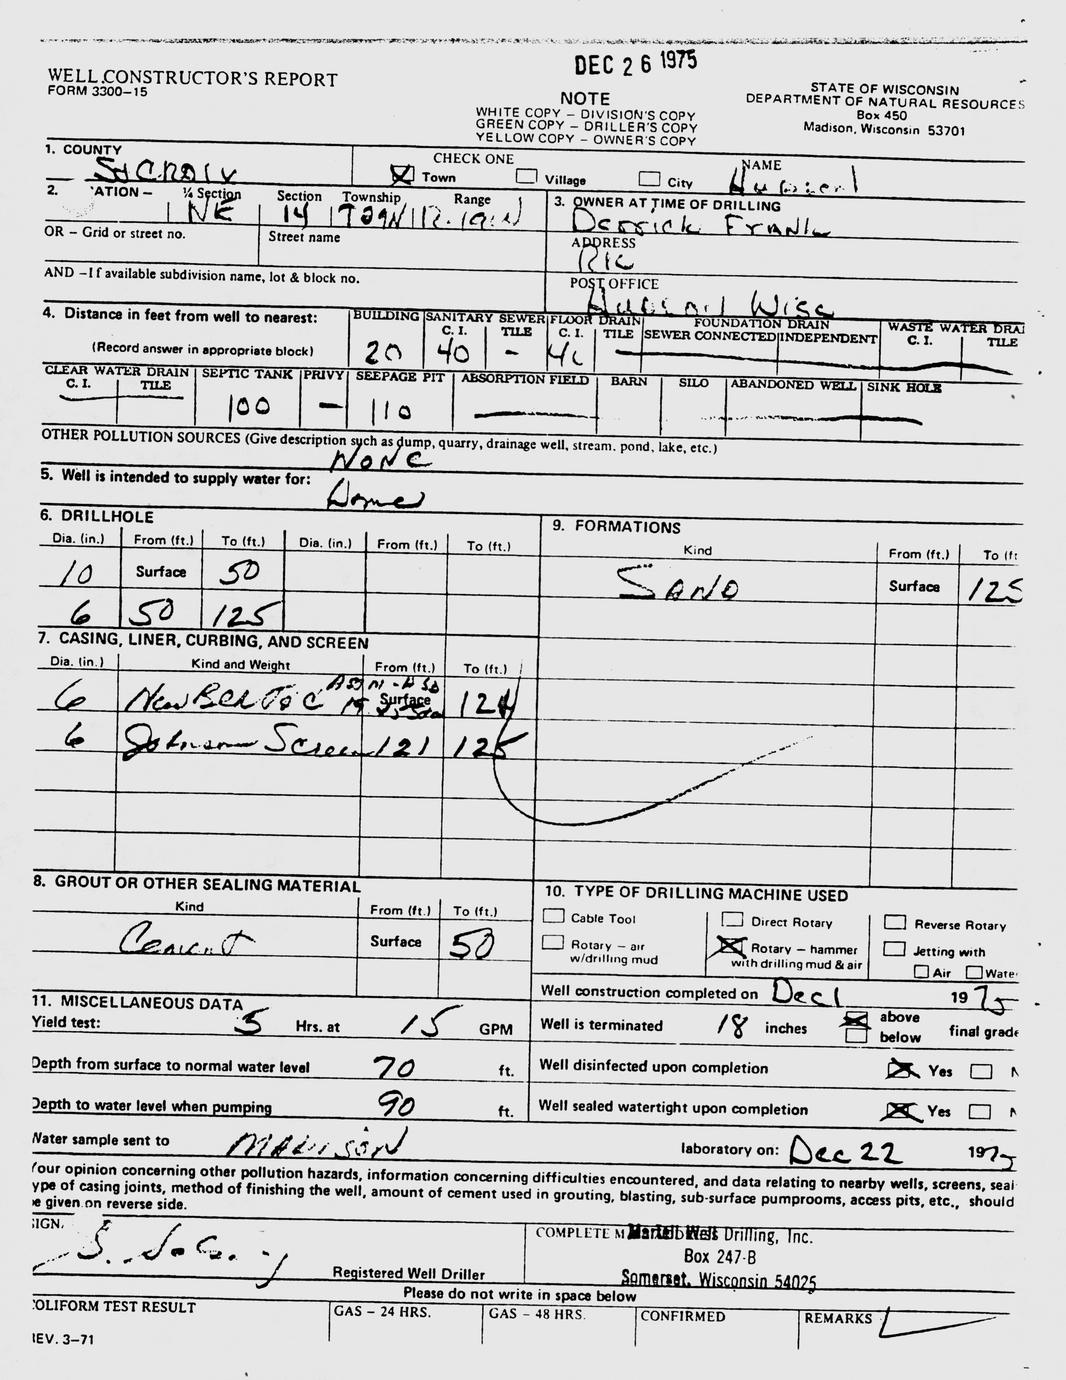 DEC 26 1975
WELL CONSTRUCTOR'S REPORT
FORM 3300-15
NOTE
WHITE COPY – DIVISION'S COPY
GREEN COPY – DRILLER'S COPY
YELLOW COPY – OWNER'S COPY
STATE OF WISCONSIN
DEPARTMENT OF NATURAL RESOURCES
Box 450
Madison, Wisconsin 53701
1. COUNTY
St Croix
CHECK ONE
Town Village City
NAME
2. ATION – ¼ Section Section Township Range
NE 14 T29N R.19W
3. OWNER AT TIME OF DRILLING
Derrick Frank
OR – Grid or street no. Street name
ADDRESS
AND – If available subdivision name, lot & block no.
POST OFFICE
Wisc
4. Distance in feet from well to nearest:
(Record answer in appropriate block)
BUILDING SANITARY SEWER FLOOR DRAIN FOUNDATION DRAIN WASTE WATER DRAI
C. I. TILE C. I. TILE SEWER CONNECTED INDEPENDENT C. I. TILE
20 40 –
CLEAR WATER DRAIN SEPTIC TANK PRIVY SEEPAGE PIT ABSORPTION FIELD BARN SILO ABANDONED WELL SINK HOLE
C. I. TILE
100 – 110
OTHER POLLUTION SOURCES (Give description such as dump, quarry, drainage well, stream, pond, lake, etc.)
NONE
5. Well is intended to supply water for:
Home
6. DRILLHOLE
Dia. (in.) From (ft.) To (ft.) Dia. (in.) From (ft.) To (ft.)
10 Surface 50
6 50 125
9. FORMATIONS
Kind From (ft.) To (ft
SAND Surface 125
7. CASING, LINER, CURBING, AND SCREEN
Dia. (in.) Kind and Weight From (ft.) To (ft.)
6 New Blk T&C Surface
6 Johnson Screen 121 125
8. GROUT OR OTHER SEALING MATERIAL
Kind From (ft.) To (ft.)
Cement Surface 50
10. TYPE OF DRILLING MACHINE USED
Cable Tool Direct Rotary Reverse Rotary
Rotary – air w/drilling mud Rotary – hammer with drilling mud & air Jetting with
Air Wate
11. MISCELLANEOUS DATA
Yield test: 5 Hrs. at 15 GPM
Depth from surface to normal water level 70 ft.
Depth to water level when pumping 90 ft.
Well construction completed on Dec 1 1975
Well is terminated 18 inches above below final grade
Well disinfected upon completion Yes N
Well sealed watertight upon completion Yes N
Water sample sent to MADISON laboratory on: Dec 22 1975
Your opinion concerning other pollution hazards, information concerning difficulties encountered, and data relating to nearby wells, screens, seal
ype of casing joints, method of finishing the well, amount of cement used in grouting, blasting, sub-surface pumprooms, access pits, etc., should
be given on reverse side.
SIGN.
Registered Well Driller
COMPLETE M
Well Drilling, Inc.
Box 247-B
Somerset, Wisconsin 54025
Please do not write in space below
COLIFORM TEST RESULT GAS – 24 HRS. GAS – 48 HRS. CONFIRMED REMARKS
REV. 3–71